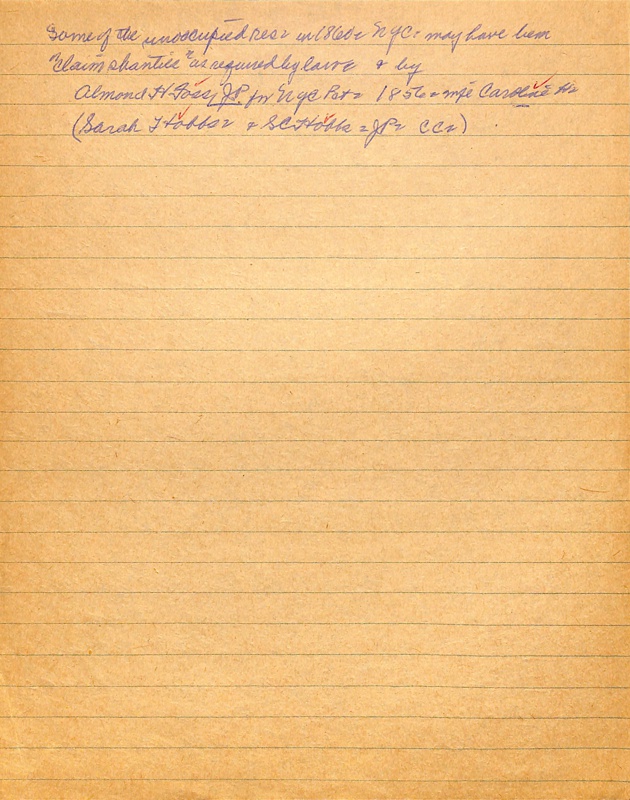 Some of the unoccupied res= in 1860= NYC= may have been
"Claim shanties" as required by law & by
Almond H Goss, JP. for NYC Pct= 1856= wife Caroline H=
(Sarah F Hobbs= = SC Hobbs = JP= CC=)